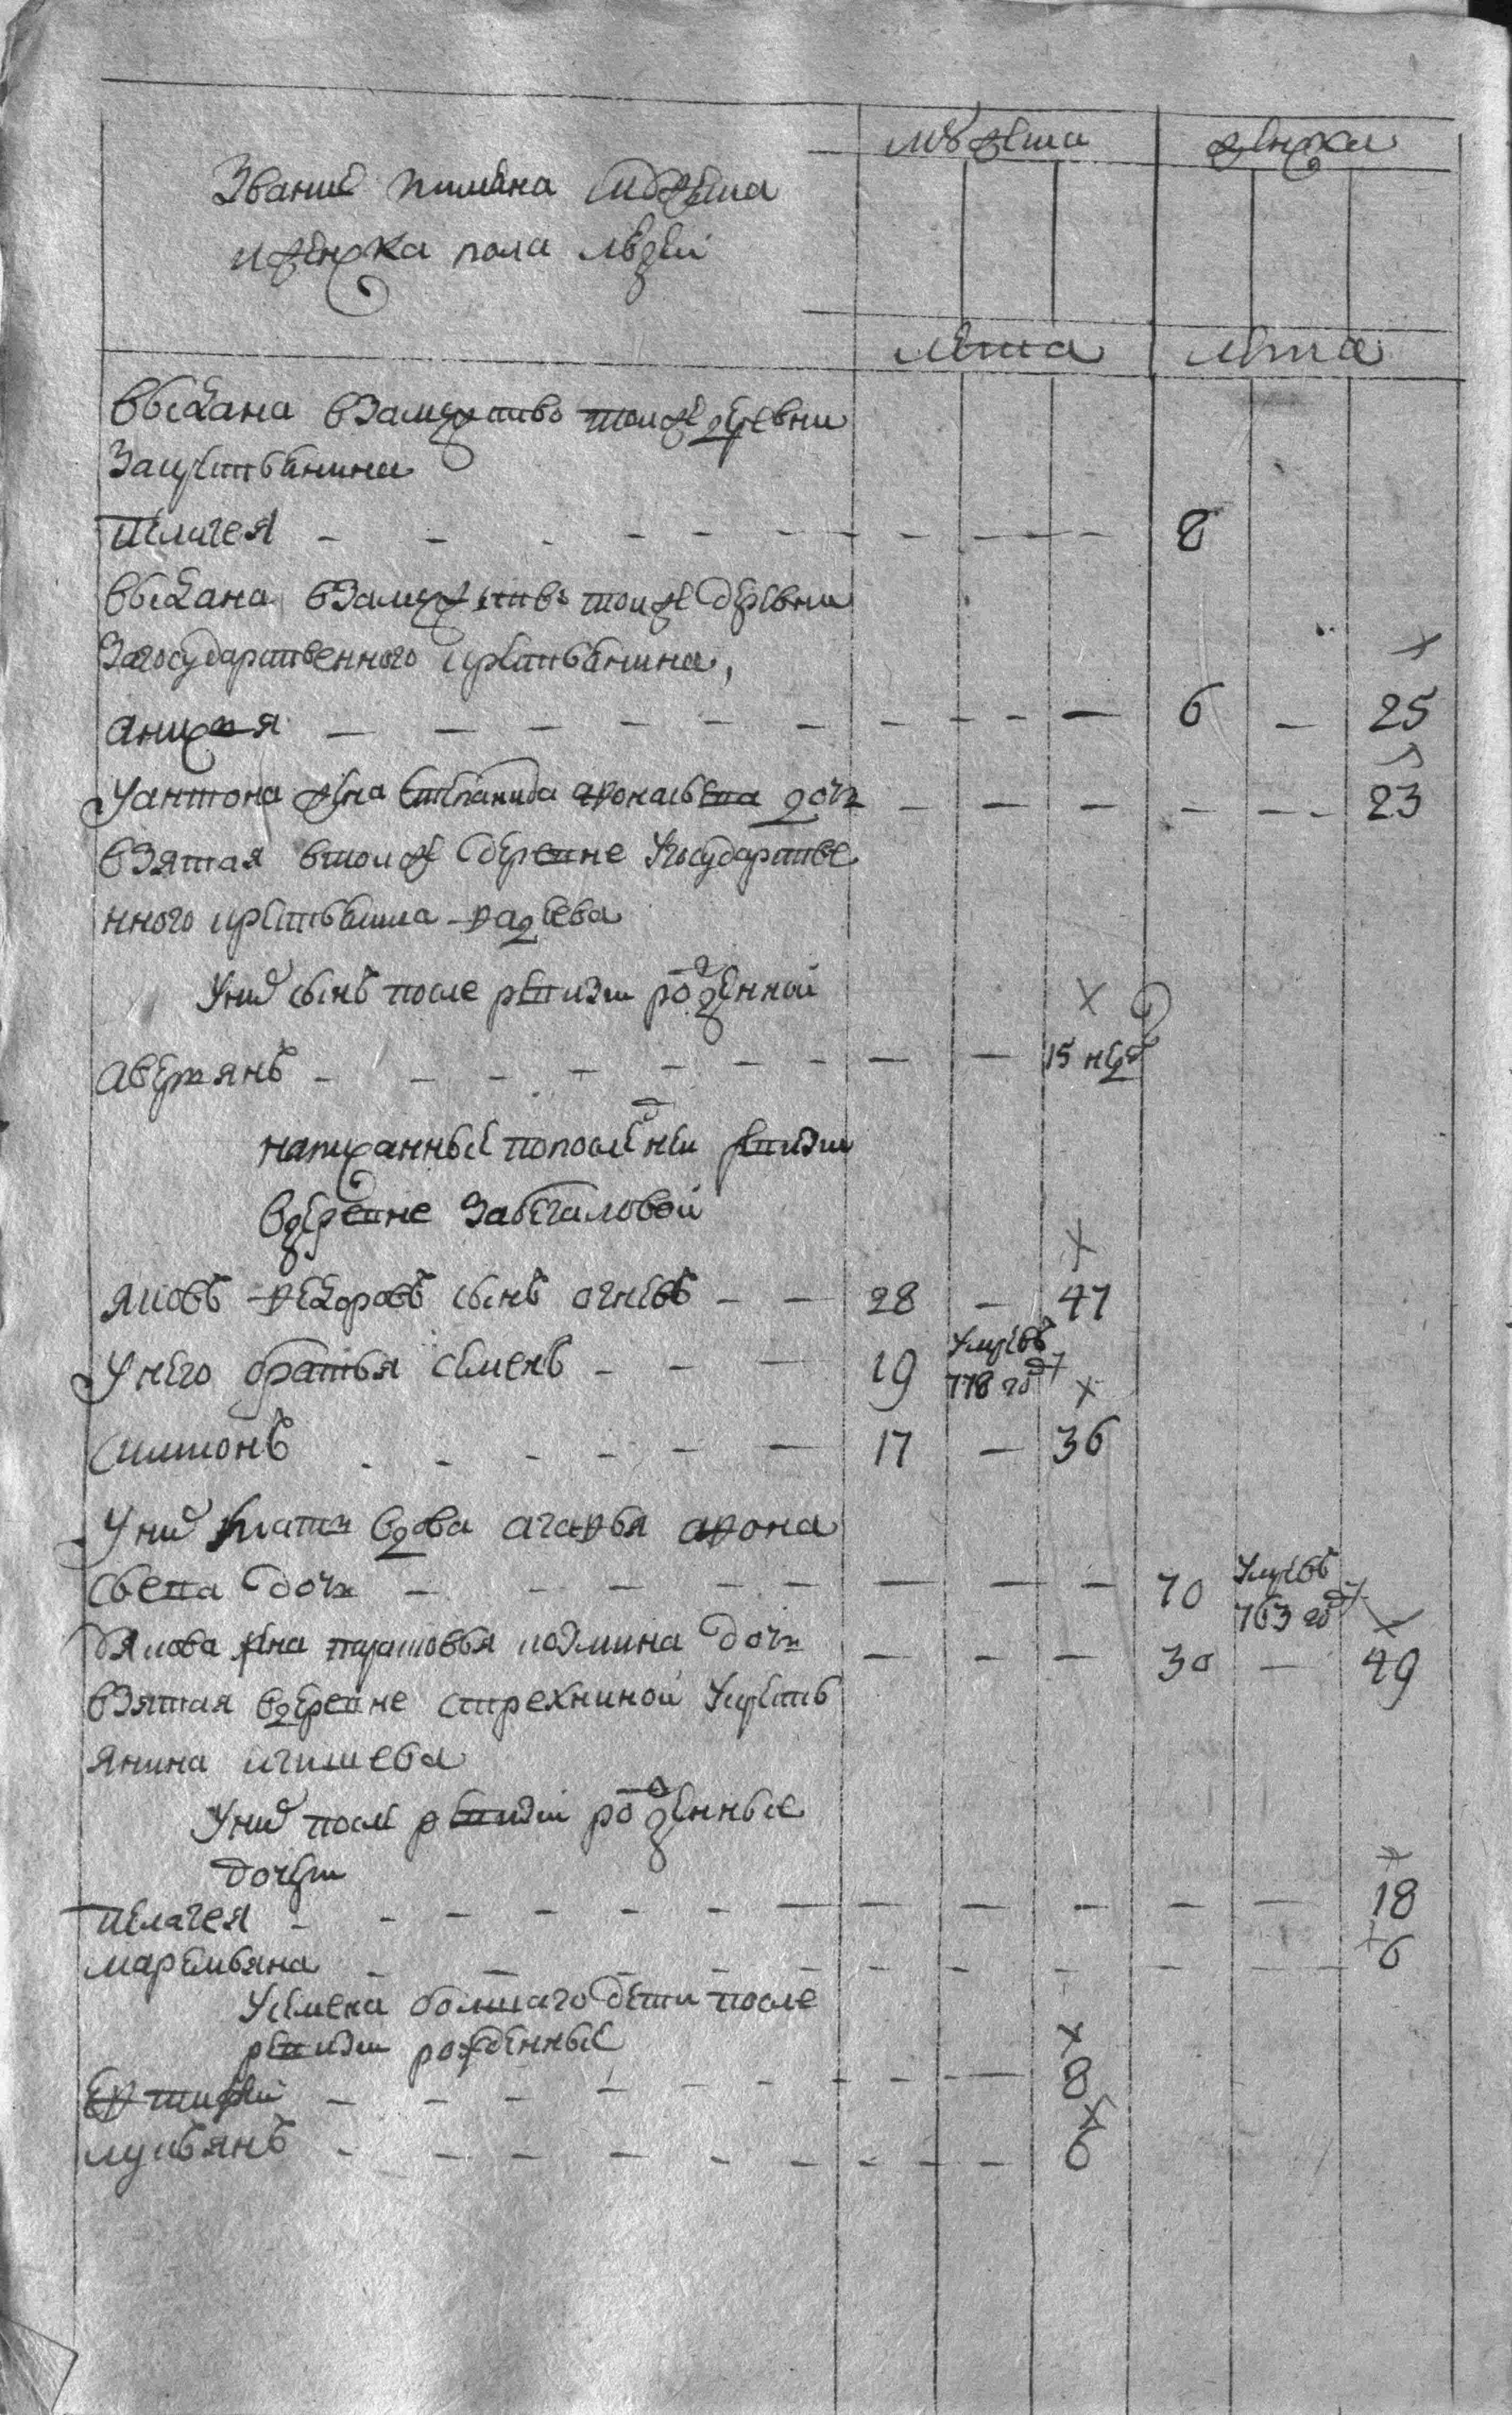 мужеска женска
Звание и имяна мужеска
и женска пола людей
лета лета
выдана взамужство тойже деревни
за крестьянина
Пелагея - - - - - - - - - - 8
выдана взамужство тойже деревни
Загосударственного крестьянина,
анисья - - - - - - - - - - 6 - 25
У антона жена степанида афонасьева дочь - - - - - - 23
взятая втойже деревне Угосударстве
нного крестьянина фадеева
Уних сынъ после ревизии рожденной
аверьянъ - - - - - - - - - 15 нед
написанные попоследней ревизии
вдеревне Забегаловой
яковъ федоровъ сынъ огневъ - - 28 - 47
У него братья семенъ - - - 19 Умревъ 778 год
Симионъ - - - - - - 17 - 36
Уних мати вдова агафья афона
сьева дочь - - - - - - - - - 70 Умревъ 763 год
Уякова жена парасковья козмина дочь - - - 30 - 49
взятая вдеревне стрехниной Укресть
янина игишева
Уних после ревизии рожденные
дочери
Пелагея - - - - - - - - - - - - 18
маремьяна - - - - - - - - - - - 6
Усемена большаго дети после
ревизии рожденные
Ефтифей - - - - - - - - - 8
лукьянъ - - - - - - - - - 6